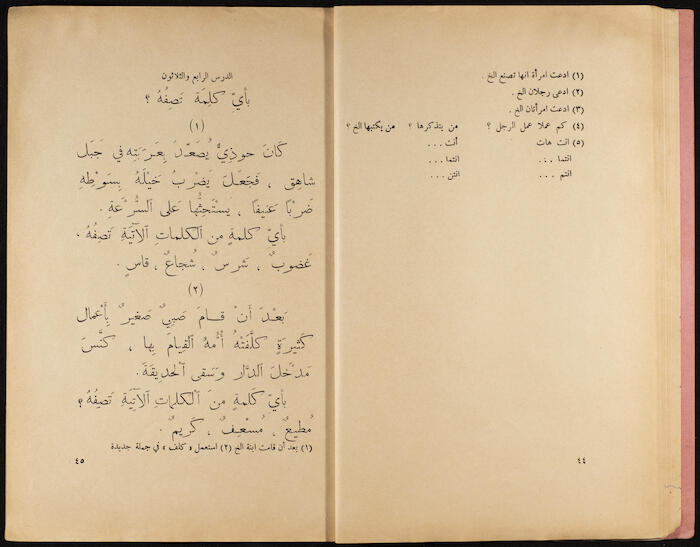 (١) ادعت امرأة انها تصنع الخ .
(٢) ادعى رجلان الخ .
(٣) ادعت امرأتان الخ .
(٤) كم عملا عمل الرجل ؟ من يتذكرها ؟ من يكتبها الخ ؟
(٥) انت هات أنت ...
انتما ... انتما ...
انتم ... انتن ...
٤٤
الدرس الرابع والثلاثون
بأيّ كلِمَة تصِفُهُ ؟
(١)
كَانَ حوذِيٌّ يُصَعّدُ بِعَرَبَتِه في جَبَل
شاهِق ، فَجَعَلَ يَضْرِبُ خَيْلَهُ بِسَوْطِهِ
ضَرْبًا عَنيفًا ، يَسْتَحِثُّها عَلى السُّرْعَةِ .
بأيّ كلمةٍ من الكلماتِ الآتِيَةِ تَصِفُهُ .
غَضوبٌ ، شَرِسٌ ، شُجاعٌ ، قاسٍ .
(٢)
بَعْدَ أَنْ قامَ صَبِيٌّ صَغيرٌ بِأَعْمال
كَثيرَةٍ كَلَّفَتْهُ أُمُّهُ القِيامَ بِها ، كَنَّسَ
مَدْخَلَ الدَّارِ وَسَقى الحَديقَةَ .
بأيّ كَلمَةٍ مِنَ الكَلِماتِ الآتِيَةِ تَصِفُهُ ؟
مُطيعٌ ، مُسْعِفٌ ، كَريمٌ .
(١) بعد أن قامت ابنة الخ (٢) استعمل « كلف » في جملة جديدة
٤٥